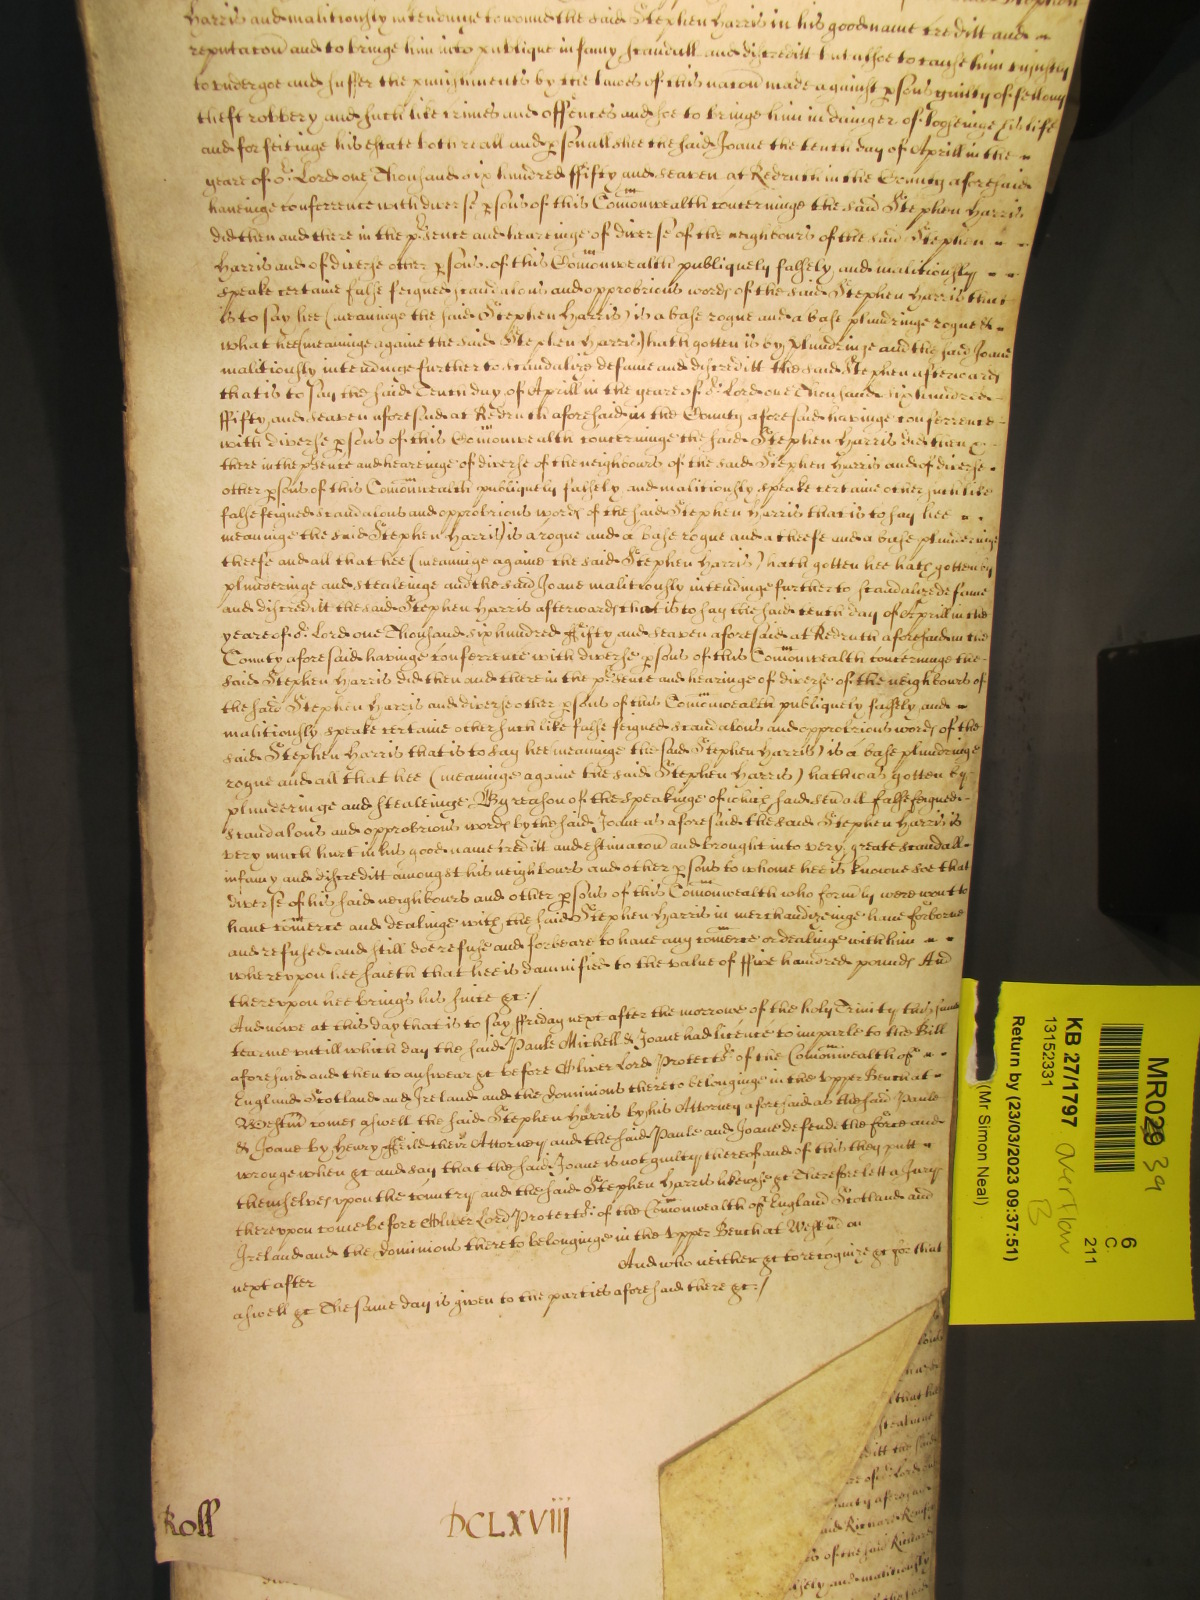 Harris and malitiously intendinge to wound the said Stephen Harris in his good name creditt and
reputacon and to bringe him into publique infamy scandall and discreditt but alsoe to cause him unjustly
to undergoe and suffer the punishments by the lawes of this nacon made against psons guilty of fellony
theft robbery and such like crimes and offences and soe to bringe him in dainger of looseinge his life
and forfeitinge his estate both reall and psonall shee the said Joane the tenth day of Aprill in the
yeare of or Lord one Thousand six hundred ffifty and seaven at Redruth in the County aforesaid
haveinge conferrence with diverse psons of this Comonwealth concerninge the said Stephen Harris
did then and there in the psence and hearinge of diverse of the neighbours of the said Stephen
Harris and of diverse other psons of this Comonwealth publiquely falsely and malitiously
speake certaine false feigned scandalous and opprobrious words of the said Stephen Harris that
is to say hee (meaninge the said Stephen Harris) is a base rogue and a base plundringe rogue &
what hee (meaninge againe the said Stephen Harris) hath gotten is by plundringe and the said Joane
malitiously intendinge further to scandalize defame and discreditt the said Stephen afterwards
that is to say the said Tenth day of Aprill in the yeare of or Lord one Thousand six hundred
ffifty and seaven aforesaid at Redruth aforesaid in the County aforesaid havinge conferrence
with diverse psons of this Comonwealth concerninge the said Stephen Harris did then &
there in the psence and heareinge of diverse of the neighbours of the said Stephen Harris and of diverse
other psons of this Comonwealth publiquely falsely and malitiously speake certaine other such like
false feigned scandalous and opprobrious words of the said Stephen Harris that is to say hee
meaninge the said Stephen Harris) is a rogue and a base rogue and a theefe and a base plunderinge
theefe and all that hee (meaninge againe the said Stephen Harris) hath gotten hee hath gotten by
plunderinge and stealeinge and the said Joane malitiously intendinge further to scandalize defame
and discreditt the said Stephen Harris afterwards that is to say the said tenth day of Aprill in the
yeare of or Lord one Thousand six hundred ffifty and seaven aforesaid at Redruth aforesaid in the
County aforesaid havinge conferrence with diverse psons of this Comonwealth concerninge the
said Stephen Harris did then and there in the psence and hearinge of diverse of the neighbours of
the said Stephen Harris and diverse other psons of this Comonwealth publiquely falsely and
malitiously speake certaine other such like false feigned scandalous and opprobrious words of the
said Stephen Harris that is to say hee (meaninge the said Stephen Harris) is a base plundringe
rogue and all that hee (meaninge againe the said Stephen Harris) hath was gotten by
plunderinge and stealeinge By reason of the speakinge of which said sevall false feigned
scandalous and opprobrious words by the said Joane as aforesaid the said Stephen Harris is
very much hurt in his good name creditt and estimacon and brought into very great scandall
infamy and discreditt amongst his neighbours and other psons to whome hee is knowne soe that
diverse of his said neighbours and other psons of this Comonwealth who formly were wont to
have comerce and dealinge with the said Stephen Harris in merchandizeinge have forborne
and refused and still doe refuse and forbeare to have any comerce or dealinge with him
whereupon hee saieth that hee is damnified to the value of ffive hundred pounds And
thereupon hee brings his suite &c:/
And nowe at this day that is to say ffriday next after the morrowe of the holy Trinity this same
tearme untill which day the said Paule Michell & Joane had licence to imparle to the Bill
aforesaid and then to answear &c before Oliver Lord Protectr of the Comonwealth of
England Scotland and Ireland and the Dominions thereto belonginge in the upper Bench at
Westm comes aswell the said Stephen Harris by his Attorney aforesaid as the said Paule
& Joane by Henry their Attorney and the said Paule and Joane defend the force and
wronge when &c and say that the said Joane is not guilty thereof and of this they putt
themselves upon the country and the said Stephen Harris likewise &c Therefore lett a Jury
thereupon come before Oliver Lord Protectr of the Comonwealth of England Scotland and
Ireland and the Dominions thereto belonginge in the upper Bench at Westm on
next after And who neither &c to recognize &c for that
aswell &c The same day is given to the parties aforesaid there &c:/
Roll DCLXVIII
MR029 39
6
C
211
KB 27/1797 overflow B
13152331
Return by (23/03/2023 09:37:51)
(Mr Simon Neal)